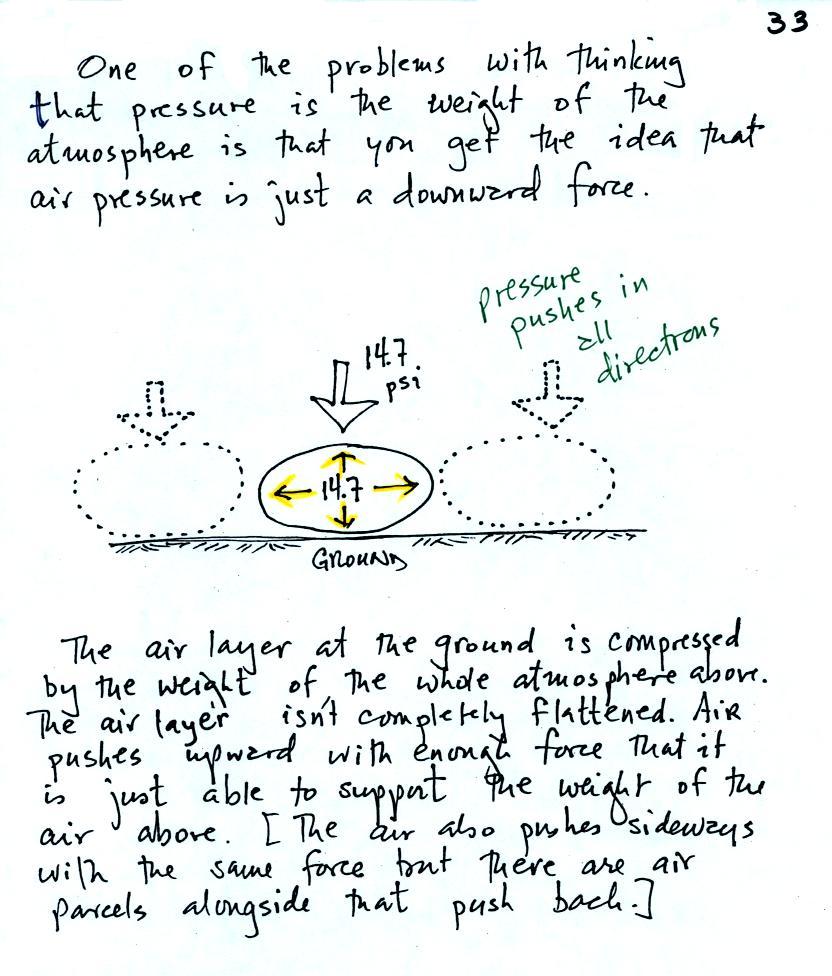 33
One of the problems with thinking
that pressure is the weight of the
atmosphere is that you get the idea that
air pressure is just a downward force.
pressure
pushes in
all
directions
14.7
psi
14.7
GROUND
The air layer at the ground is compressed
by the weight of the whole atmosphere above.
The air layer isn't completely flattened. Air
pushes upward with enough force that it
is just able to support the weight of the
air above. [The air also pushes sideways
with the same force but there are air
parcels alongside that push back.]